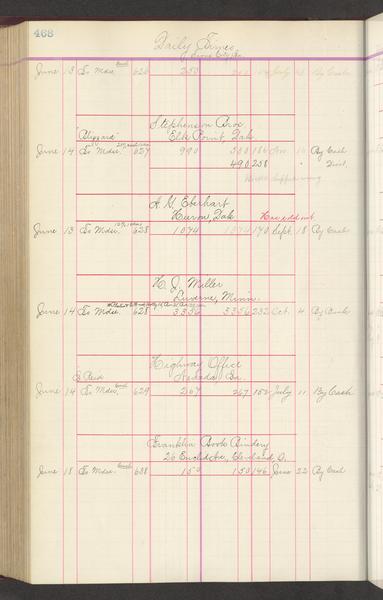 468
Daily Times
Sioux City Ia.
June 13 To Mdse. 626 250 July By Cash
Stephenson Bros
Elk Point, Dak.
June 14 To Mdse. 627 990 500 186 Nov By Cash
490 258 " Disct.
A. G. Eberhart
Huron, Dak Has sold out
June 13 To Mdse. 628 1074 1074 170 Sept. 18 By Cash
H. J. Miller
Luverne, Minn.
June 14 To Mdse. 628 3356 3356 232 Oct. 4 By Bank
Highway Office
Nevada Ia.
June 14 To Mdse. 629 267 267 152 July 11 By Cash
Franklin Book Bindery
26 Euclid Ave, Cleveland, O.
June 18 To Mdse. 638 150 150 146 June 22 By Cash